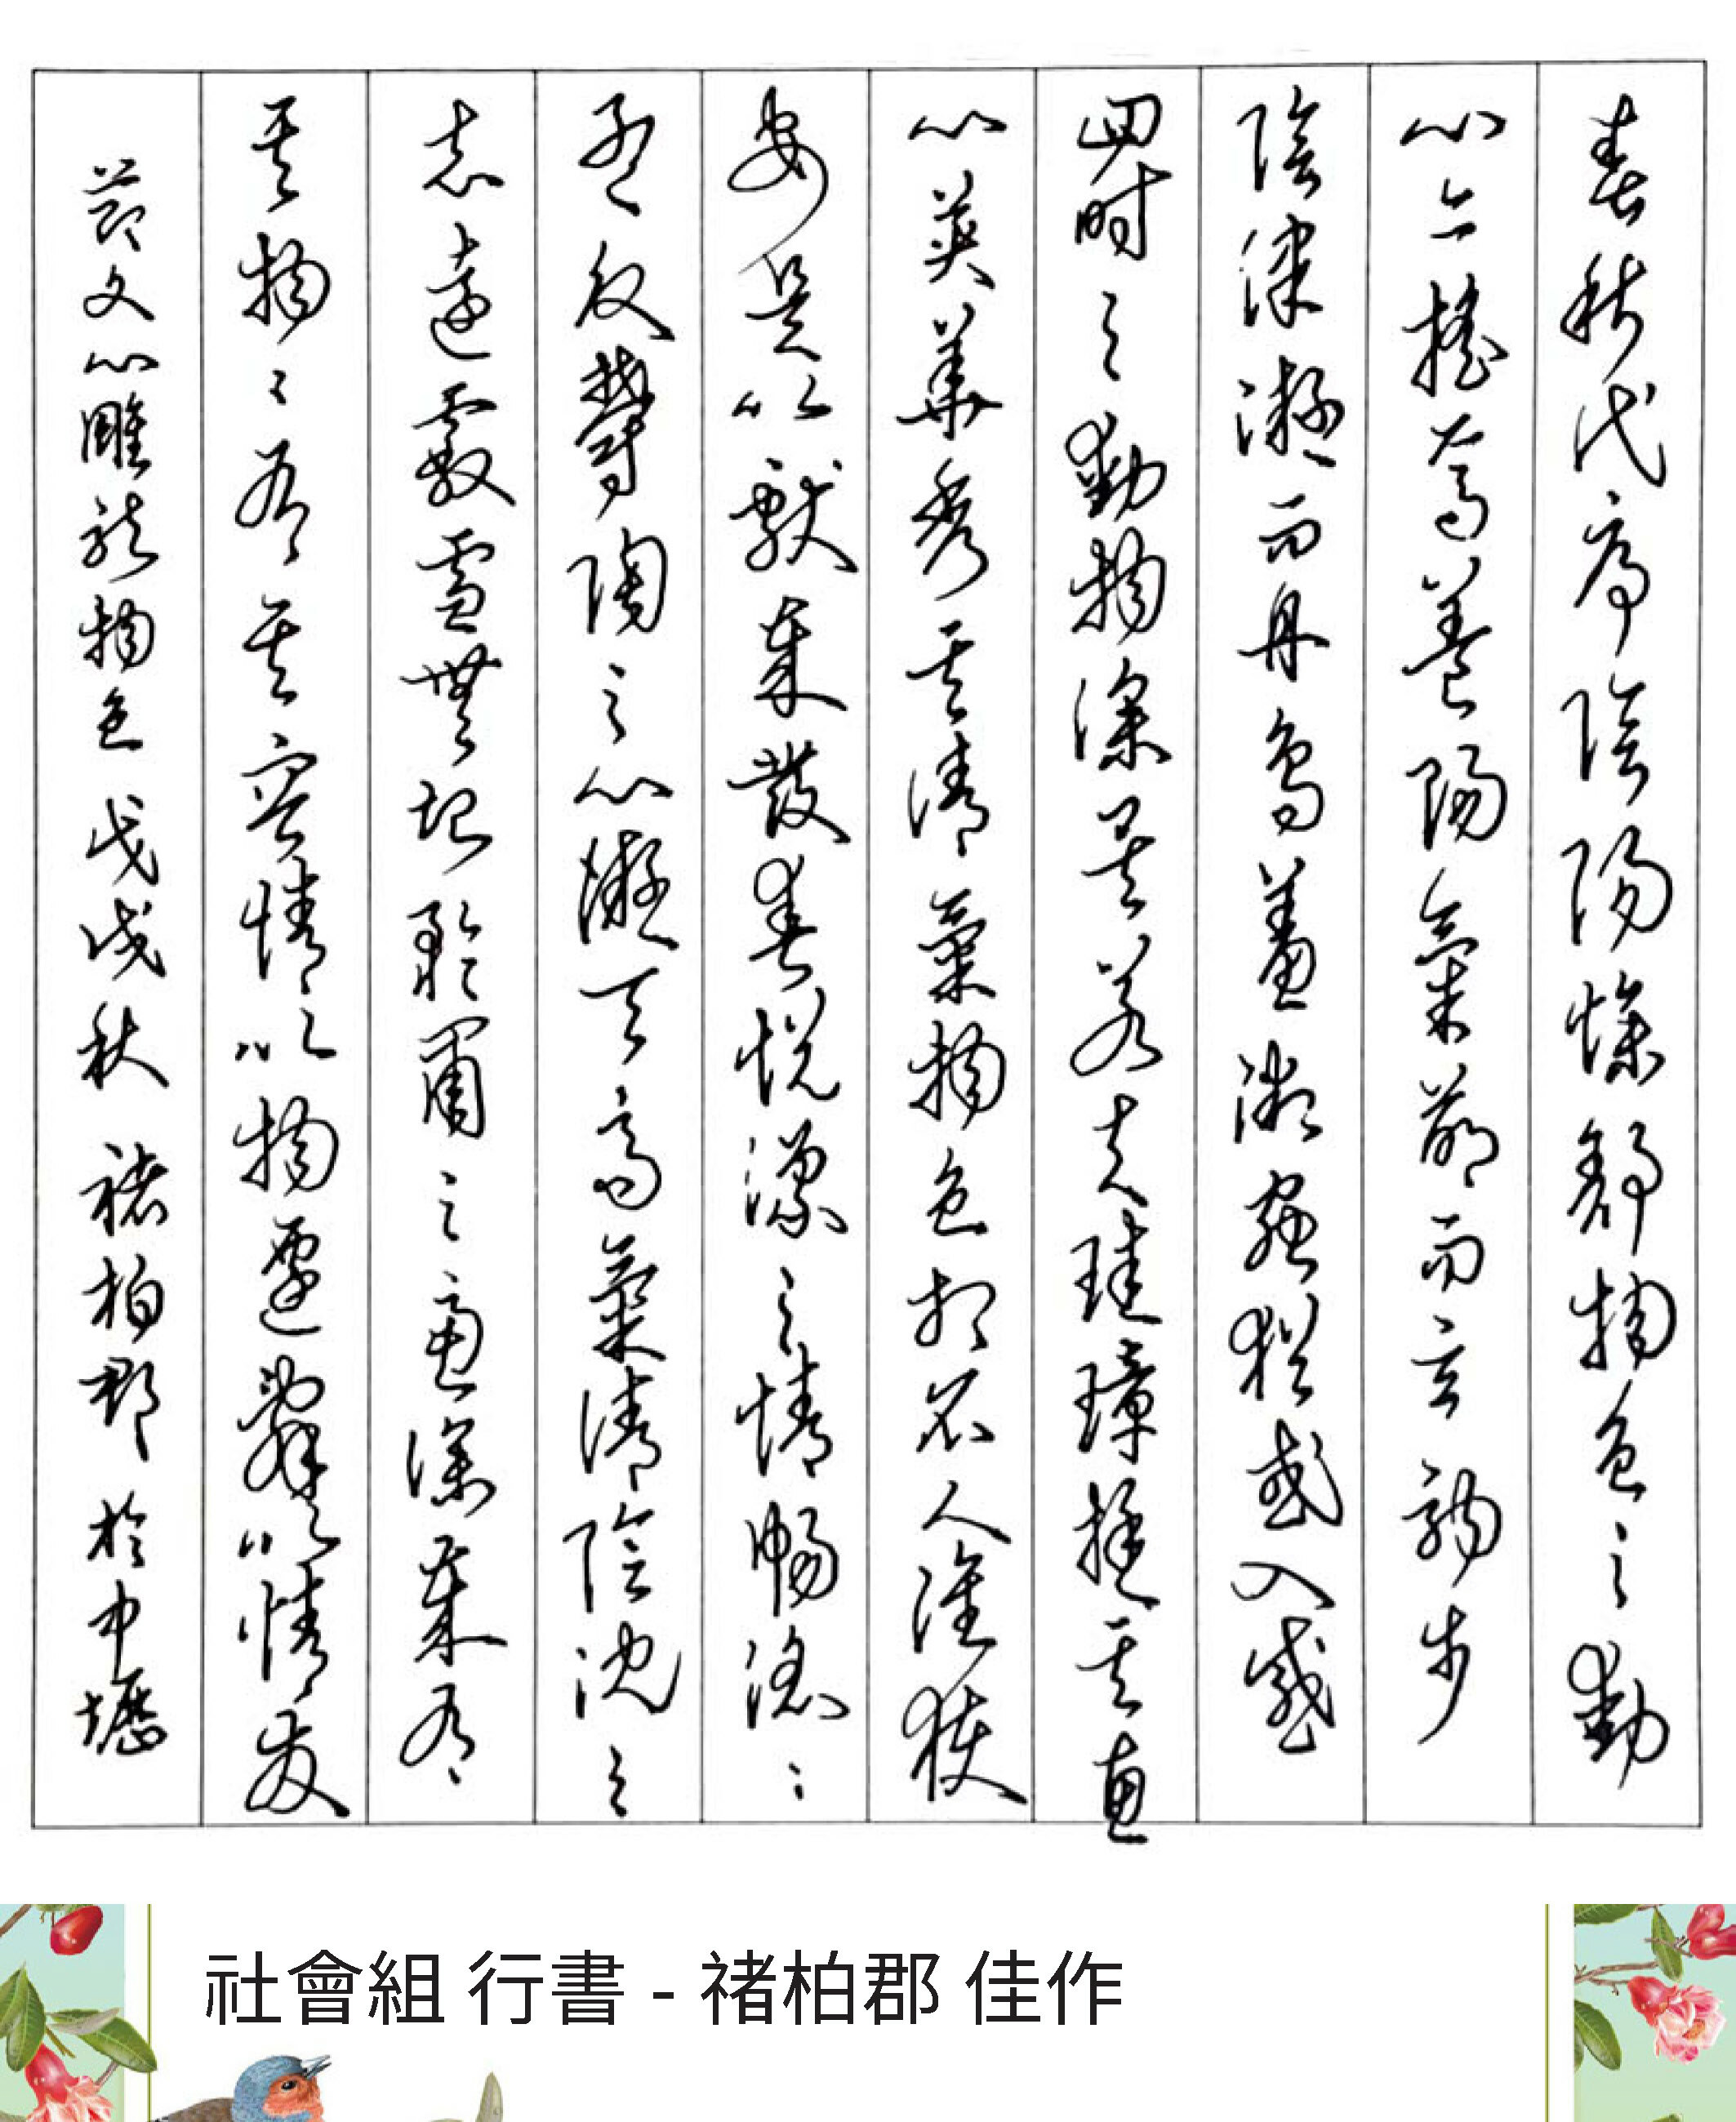 春秋代序陰陽慘舒物色之動
心亦搖焉蓋陽氣萌而玄駒步
陰律凝而丹鳥羞微蟲猶或入感
四時之動物深矣若夫珪璋挺其惠
心英華秀其清氣物色相召人誰獲
安是以獻歲發春悅豫之情暢滔〻
孟夏鬱陶之心凝天高氣清陰沈之
志遠霰雪無垠矜肅之慮深歲有
其物〻有其容情以物遷辭以情發
節文心雕龍物色 戊戌秋 褚柏郡 於中壢
社會組 行書 - 褚柏郡 佳作